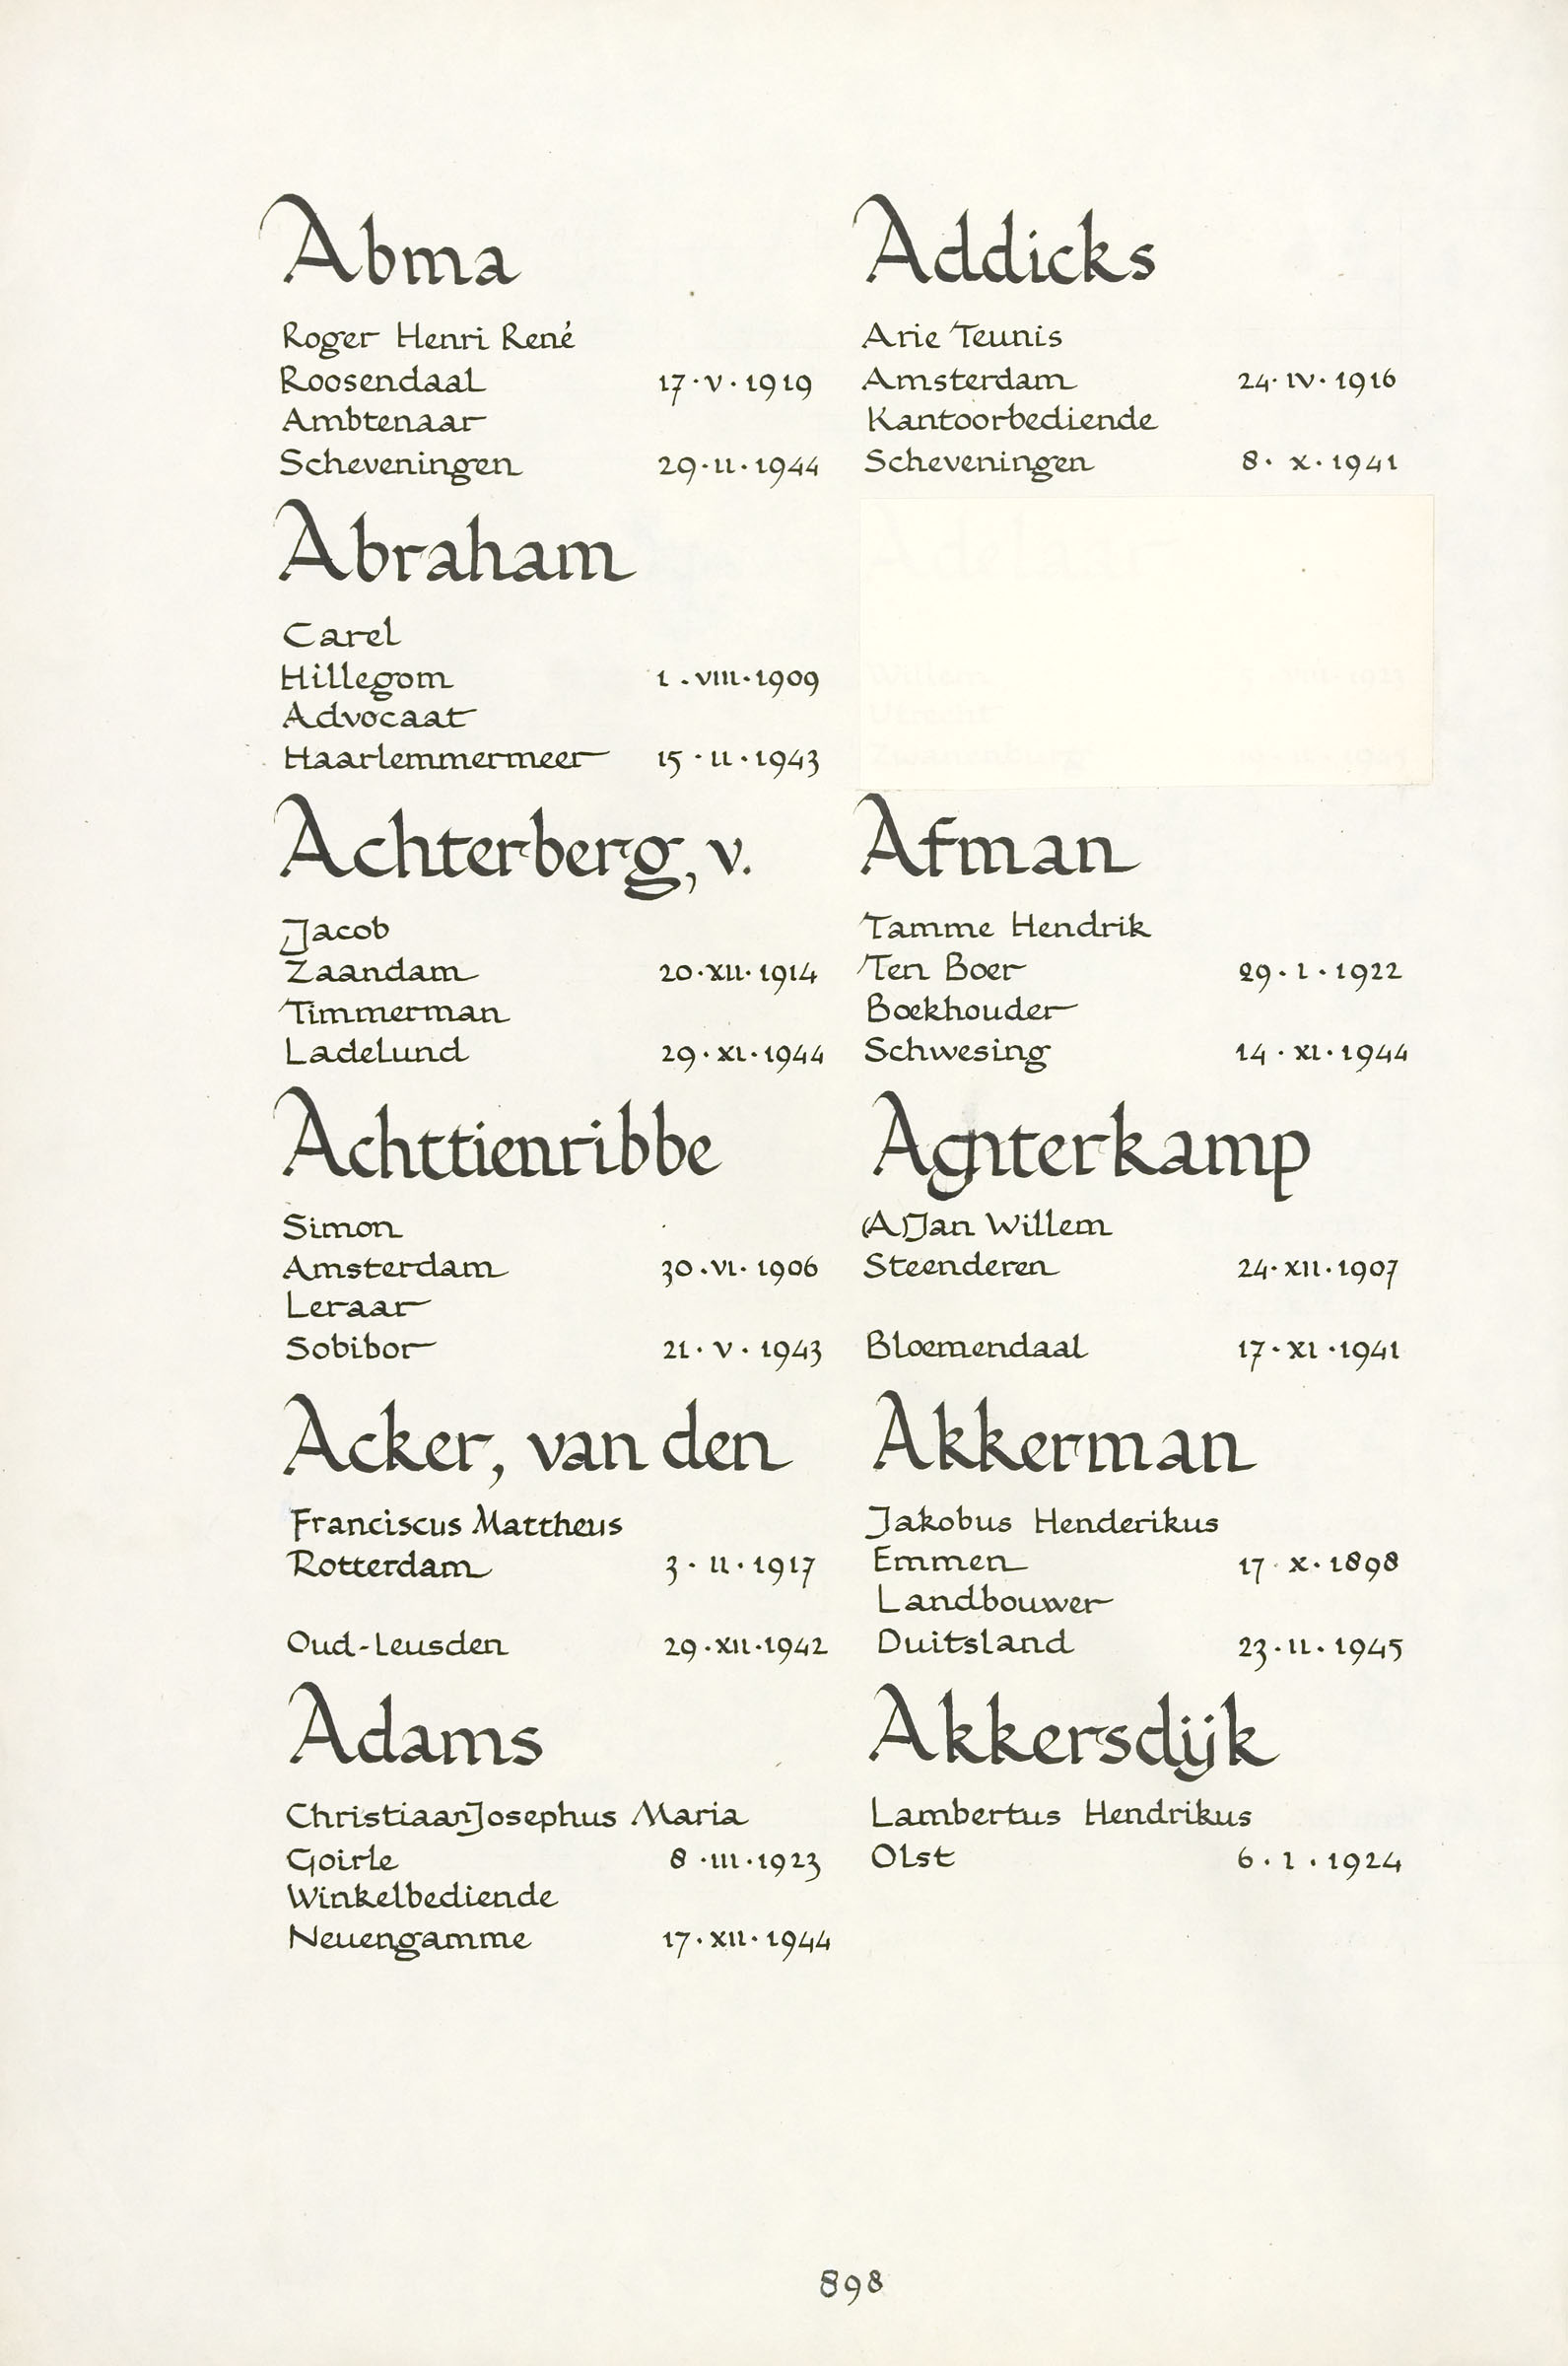 Abma
Roger Henri René
Roosendaal 17·V·1919
Ambtenaar
Scheveningen 29·II·1944
Abraham
Carel
Hillegom 1·VIII·1909
Advocaat
Haarlemmermeer 15·II·1943
Achterberg, v.
Jacob
Zaandam 20·XII·1914
Timmerman
Ladelund 29·XI·1944
Achttienribbe
Simon
Amsterdam 30·VI·1906
Leraar
Sobibor 21·V·1943
Acker, van den
Franciscus Mattheus
Rotterdam 3·II·1917
Oud-Leusden 29·XII·1942
Adams
Christiaan Josephus Maria
Goirle 8·III·1923
Winkelbediende
Neuengamme 17·XII·1944
Addicks
Arie Teunis
Amsterdam 24·IV·1916
Kantoorbediende
Scheveningen 8·X·1941
Willem
Utrecht
Afman
Tamme Hendrik
Ten Boer 29·I·1922
Boekhouder
Schwesing 14·XI·1944
Agnterkamp
(A)Jan Willem
Steenderen 24·XII·1907
Bloemendaal 17·XI·1941
Akkerman
Jakobus Henderikus
Emmen 17·X·1898
Landbouwer
Duitsland 23·II·1945
Akkersdijk
Lambertus Hendrikus
Olst 6·I·1924
898